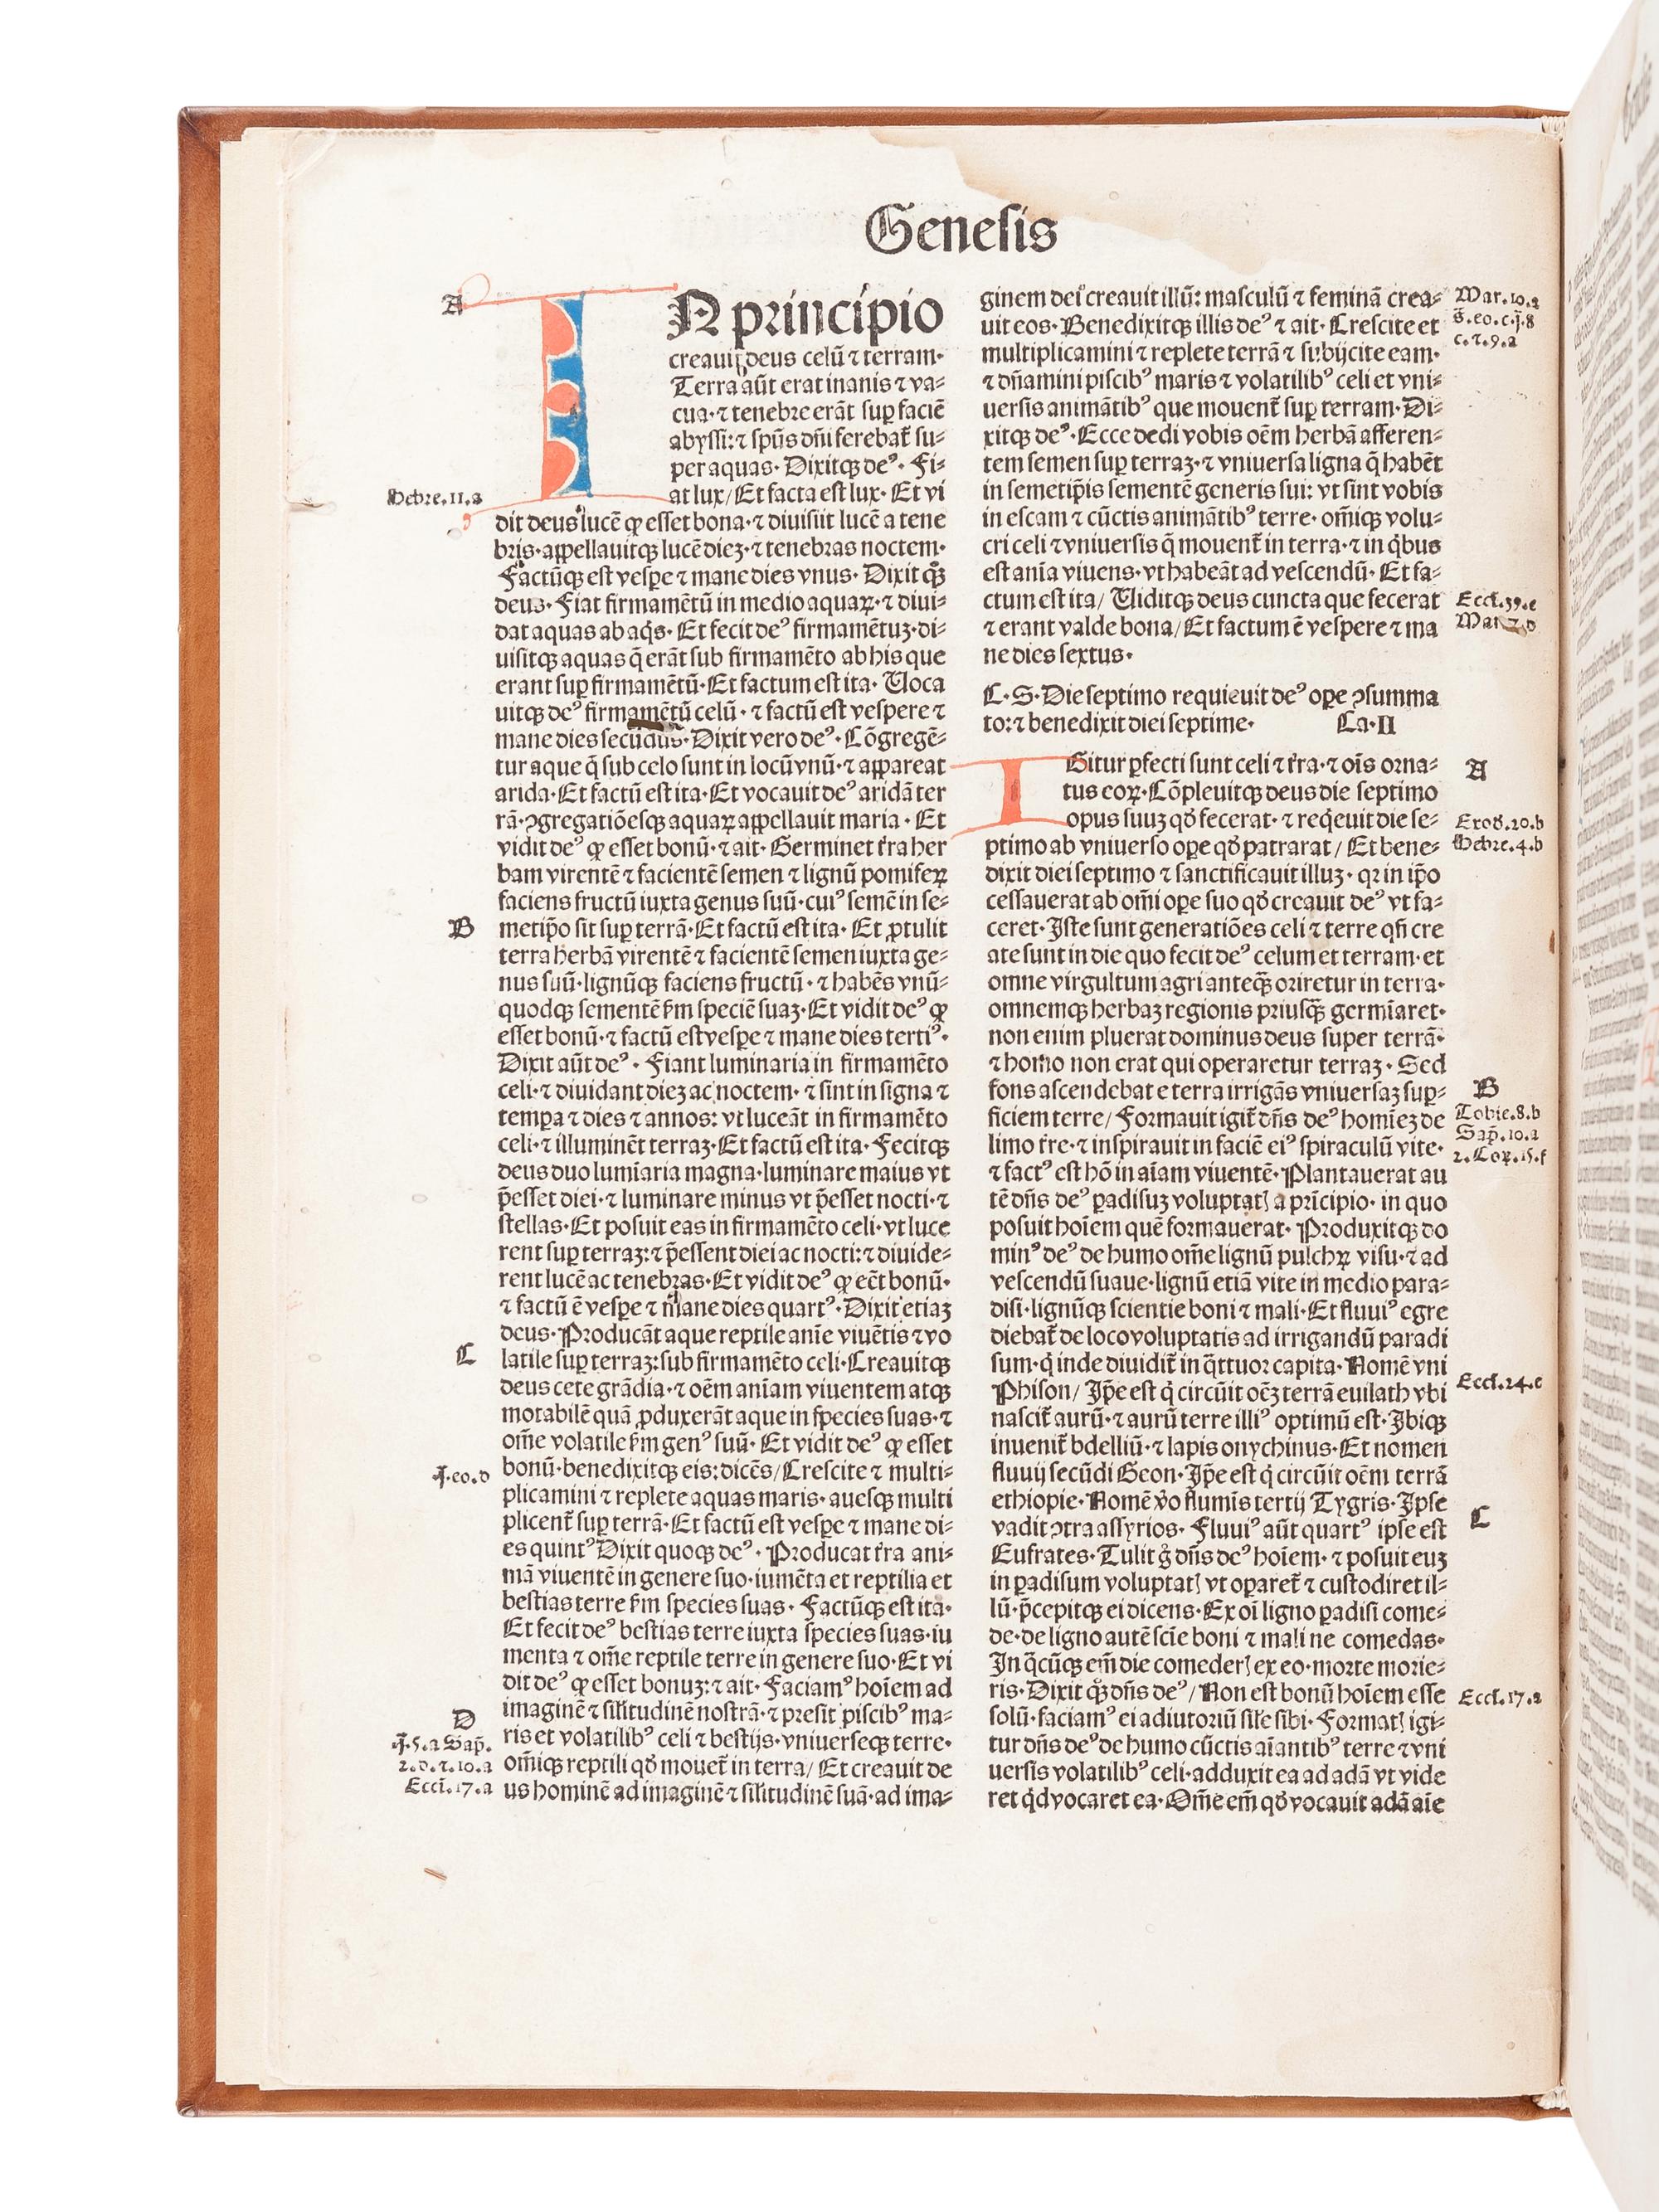 Genesis
A
IN principio
creauit deus celū ⁊ terram·
Terra aūt erat inanis ⁊ va⸗
cua·⁊ tenebre erāt sup̱ faciē
abyssi:⁊ spūs dn̄i ferebat᷑ su⸗
per aquas· Dixitqꝫ de⁹· Fi⸗
at lux/Et facta est lux· Et vi
Hebre.11.a
dit deus lucē ꝙ esset bona·⁊ diuisit lucē a tene
bris·appellauitqꝫ lucē dieꝫ·⁊ tenebras noctem·
Factūqꝫ est vesp̱e ⁊ mane dies vnus· Dixit qͦqꝫ
deus· Fiat firmamētū in medio aquaꝝ·⁊ diui⸗
dat aquas ab aq̄s· Et fecit de⁹ firmamētuꝫ·di⸗
uisitqꝫ aquas q̄ erāt sub firmamēto ab his que
erant sup̱ firmamētū·Et factum est ita· Uoca
uitqꝫ de⁹ firmamētū celū·⁊ factū est vespere ⁊
mane dies secūdus·Dixit vero de⁹·Cōgregē⸗
tur aque q̄ sub celo sunt in locū vnū·⁊ appareat
arida·Et factū est ita·Et vocauit de⁹ aridā ter
rā·ꝯgregatiōesqꝫ aquaꝝ appellauit maria·Et
vidit de⁹ ꝙ esset bonū·⁊ ait·Germinet tr̄a her
bam virentē ⁊ facientē semen ⁊ lignū pomifeꝝ
faciens fructū iuxta genus suū·cui⁹ semē in se⸗
B
metip̄o sit sup̱ terrā·Et factū est ita· Et ꝓtulit
terra herbā virentē ⁊ facientē semen iuxta ge⸗
nus suū·lignūqꝫ faciens fructū·⁊ habēs vnū⸗
quodqꝫ sementē s̄m speciē suaꝫ·Et vidit de⁹ ꝙ
esset bonū·⁊ factū est vesp̱e ⁊ mane dies terti⁹·
Dixit aūt de⁹· Fiant luminaria in firmamēto
celi·⁊ diuidant dieꝫ ac noctem·⁊ sint in signa ⁊
temp̱a ⁊ dies ⁊ annos: vt luceāt in firmamēto
celi·⁊ illuminēt terraꝫ·Et factū est ita·Fecitqꝫ
deus duo lumīaria magna·luminare maius vt
p̄esset diei·⁊ luminare minus vt p̄esset nocti·⁊
stellas·Et posuit eas in firmamēto celi·vt luce
rent sup̱ terraꝫ:⁊ p̄essent diei ac nocti:⁊ diuide⸗
rent lucē ac tenebras·Et vidit de⁹ ꝙ eēt bonū·
⁊ factū ē vesp̱e ⁊ mane dies quart⁹·Dixit etiaꝫ
deus·Producāt aque reptile anīe viuētis ⁊ vo
C
latile sup̱ terraꝫ:sub firmamēto celi·Creauitqꝫ
deus cete grādia·⁊ oēm anīam viuentem atqꝫ
motabilē quā ꝓduxerāt aque in species suas·⁊
om̄e volatile s̄m gen⁹ suū·Et vidit de⁹ ꝙ esset
j̄.eo.d
bonū·benedixitqꝫ eis:dicēs/Crescite ⁊ multi⸗
plicamini ⁊ replete aquas maris·auesqꝫ multi
plicent᷑ sup̱ terrā·Et factū est vesp̱e ⁊ mane di⸗
es quint⁹ Dixit quoqꝫ de⁹·Producat tr̄a ani⸗
mā viuentē in genere suo·iumēta et reptilia et
bestias terre s̄m species suas· Factūqꝫ est ita·
Et fecit de⁹ bestias terre iuxta species suas·iu
menta ⁊ om̄e reptile terre in genere suo·Et vi
dit de⁹ ꝙ esset bonuꝫ:⁊ ait·Faciam⁹ hoīem ad
imaginē ⁊ silitudinē nostrā·⁊ presit piscib⁹ ma⸗
D
ris et volatilib⁹ celi ⁊ bestijs·vniuerseqꝫ terre·
j̄.5.a Sap̄.
omīqꝫ reptili qd̄ mouet᷑ in terra/Et creauit de
2.d.⁊.10.a
us hominē ad imaginē ⁊ silitudinē suā·ad ima⸗
Eccī.17.a
ginem dei creauit illū: masculū ⁊ feminā crea⸗
Mar.10.a
uit eos·Benedixitqꝫ illis de⁹ ⁊ ait·Crescite et
s̄.eo.c.j̄.8
multiplicamini ⁊ replete terrā ⁊ subijcite eam·
c.⁊.9.a
⁊ dn̄amini piscib⁹ maris ⁊ volatilib⁹ celi et vni⸗
uersis animātib⁹ que mouent᷑ sup̱ terram·Di⸗
xitqꝫ de⁹·Ecce dedi vobis oēm herbā afferen⸗
tem semen sup̱ terraꝫ·⁊ vniuersa ligna q̄ habēt
in semetip̄is sementē generis sui: vt sint vobis
in escam ⁊ cūctis animātib⁹ terre· omīqꝫ volu⸗
cri celi ⁊ vniuersis q̄ mouent᷑ in terra·⁊ in qͥbus
est anīa viuens·vt habeāt ad vescendū· Et fa⸗
ctum est ita/ Uiditqꝫ deus cuncta que fecerat
Eccī.39.c
⁊ erant valde bona/Et factum ē vespere ⁊ ma
Mar.7.d
ne dies sextus·
C·S·Die septimo requieuit de⁹ op̱e ꝯsumma
to:⁊ benedixit diei septime· Ca·II
A
IGitur ꝑfecti sunt celi ⁊ tr̄a·⁊ oīs orna⸗
tus eoꝝ·Cōpleuitqꝫ deus die septimo
opus suuꝫ qd̄ fecerat·⁊ reqͥeuit die se⸗
Exod.20.b
ptimo ab vniuerso op̱e qd̄ patrarat/Et bene⸗
Hebre.4.b
dixit diei septimo ⁊ sanctificauit illuꝫ·qꝛ in ip̄o
cessauerat ab omī op̱e suo qd̄ creauit de⁹ vt fa⸗
ceret·Iste sunt generatiōes celi ⁊ terre qn̄ cre
ate sunt in die quo fecit de⁹ celum et terram·et
omne virgultum agri anteqꝫ̄ oriretur in terra·
omnemqꝫ herbaꝫ regionis priusqꝫ̄ germīaret·
non enim pluerat dominus deus super terrā·
⁊ homo non erat qui operaretur terraꝫ·Sed
fons ascendebat e terra irrigās vniuersaꝫ sup̱⸗
B
ficiem terre/Formauit igit᷑ dn̄s de⁹ homīeꝫ de
Tobie.8.b
limo tr̄e·⁊ inspirauit in faciē ei⁹ spiraculū vite·
Sap̄.10.a
⁊ fact⁹ est hō in aīam viuentē·Plantauerat au
2.Coꝝ.15.f
tē dn̄s de⁹ ꝑadisuꝫ voluptatꝭ a prīcipio·in quo
posuit hoīem quē formauerat·Produxitqꝫ do
min⁹ de⁹ de humo om̄e lignū pulchꝝ visu·⁊ ad
vescendū suaue·lignū etiā vite in medio para⸗
disi·lignūqꝫ scientie boni ⁊ mali·Et fluui⁹ egre
diebat᷑ de loco voluptatis ad irrigandū paradi
sum·qͥ inde diuidit᷑ in qͣttuor capita·Nomē vni
Phison/Ip̄e est qͥ circūit oēꝫ terrā euilath vbi
Eccī.24.c
nascit᷑ aurū·⁊ aurū terre illi⁹ optimū est·Ibiqꝫ
inuenit᷑ bdelliū·⁊ lapis onychinus·Et nomen
fluuij secūdi Geon·Ip̄e est qͥ circūit oēm terrā
ethiopie·Nomē v̄o flumīs tertij Tygris·Ipse
vadit ꝯtra assyrios·Fluui⁹ aūt quart⁹ ipse est
C
Eufrates·Tulit gͦ dn̄s de⁹ hoīem·⁊ posuit euꝫ
in ꝑadisum voluptatꝭ vt oꝑaret᷑ ⁊ custodiret il⸗
lū·p̄cepitqꝫ ei dicens·Ex oī ligno ꝑadisi come⸗
de·de ligno autē scīe boni ⁊ mali ne comedas·
In qͣcūqꝫ em̄ die comederꝭ ex eo·morte morie⸗
ris·Dixit qͦqꝫ dn̄s de⁹/Non est bonū hoīem esse
Eccī.17.a
solū·faciam⁹ ei adiutoriū sil̄e sibi·Formatꝭ igi⸗
tur dn̄s de⁹ de humo cūctis aīantib⁹ terre ⁊ vni
uersis volatilib⁹ celi·adduxit ea ad adā vt vide
ret qͥd vocaret ea·Om̄e em̄ qd̄ vocauit adā aīe